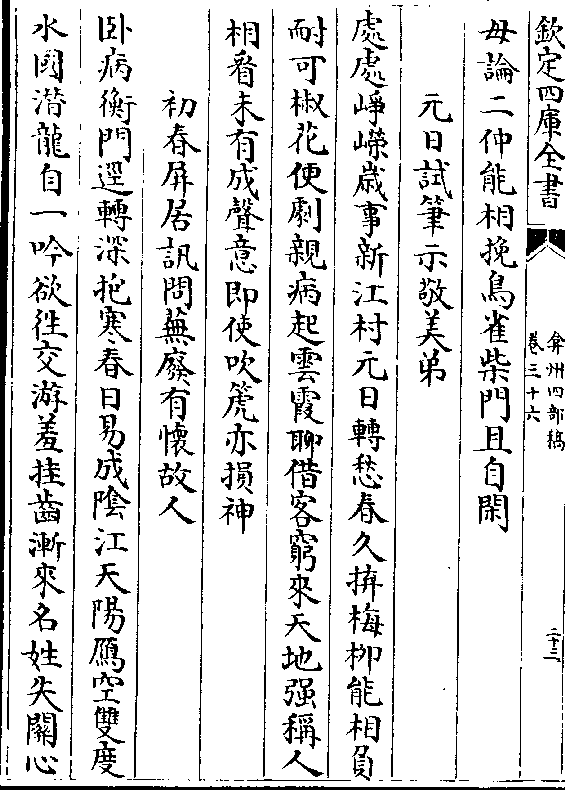 欽定四庫全書
弇州四部稿
卷三十六
二十二
毋論二仲能相挽鳥雀柴門且自閑
元日試筆示敬美弟
處處崢嶸歲事新江村元日轉愁春久拚梅柳能相負
耐可椒花便劇親病起雲霞聊借客窮來天地强稱人
相看未有成聲意即使吹箎亦損神
初春屏居訊問蕪廢有懷故人
卧病衡門逕轉深抱寒春日易成隂江天陽鴈空雙度
水國潛龍自一吟欲徃交游羞挂齒漸來名姓失關心